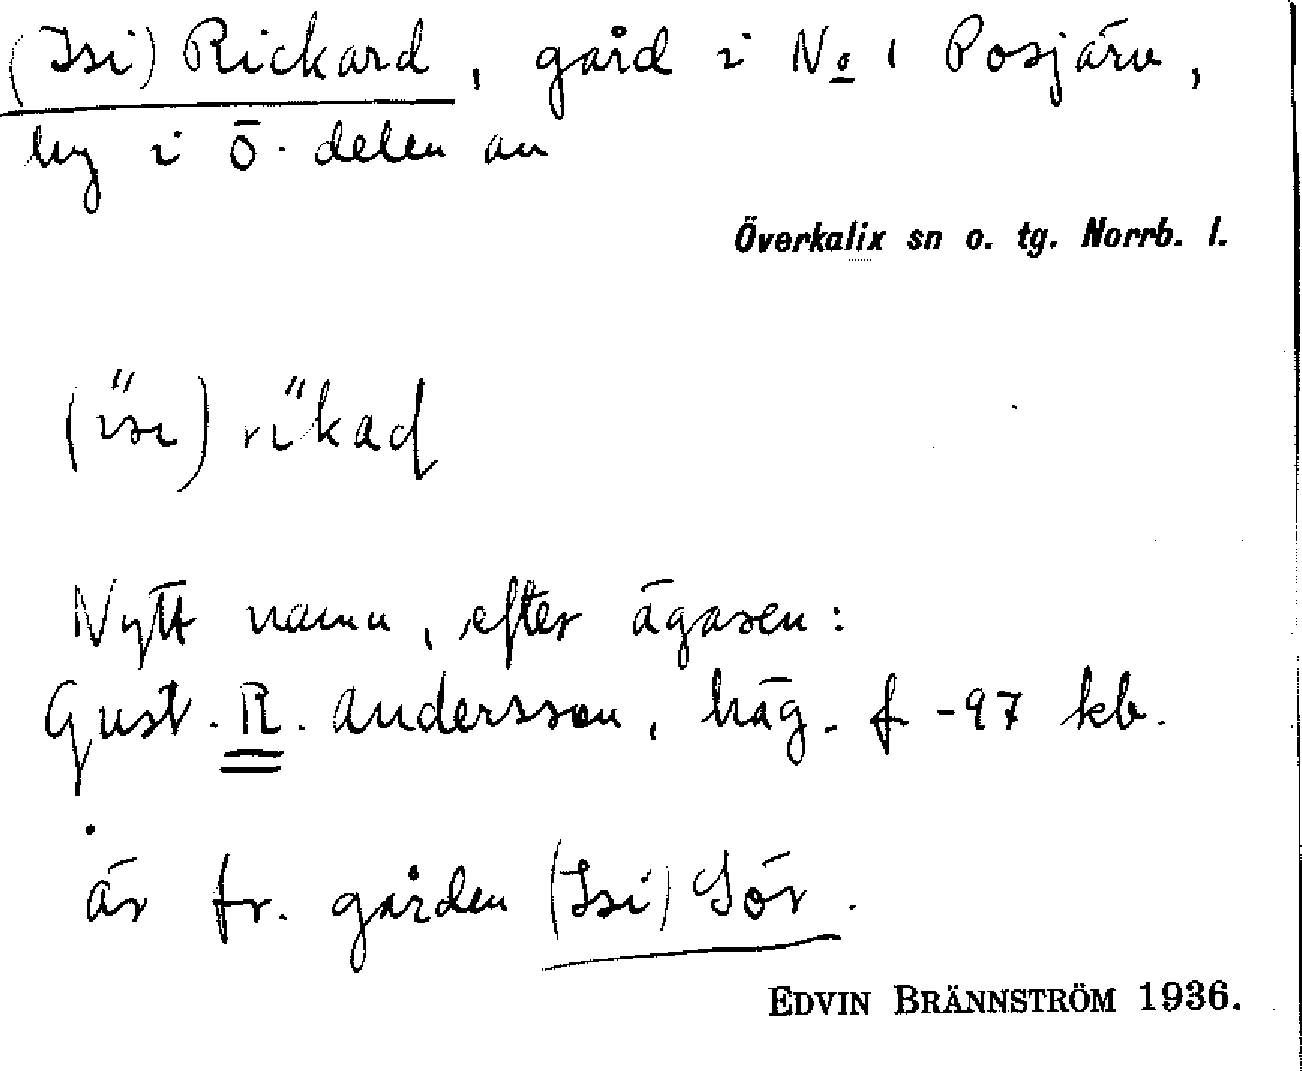 (Isi) Rickard, gård i No 1 Posjärv,
by i ö. delen av
Överkalix sn o. tg. Norrb. l.
(ïsi) rïkad
Nytt namn, efter ägaren:
Gust. R. Andersson, häg. f -97 kb.
är fr. gården (Isi) Sör.
EDVIN BRÄNNSTRÖM 1936.